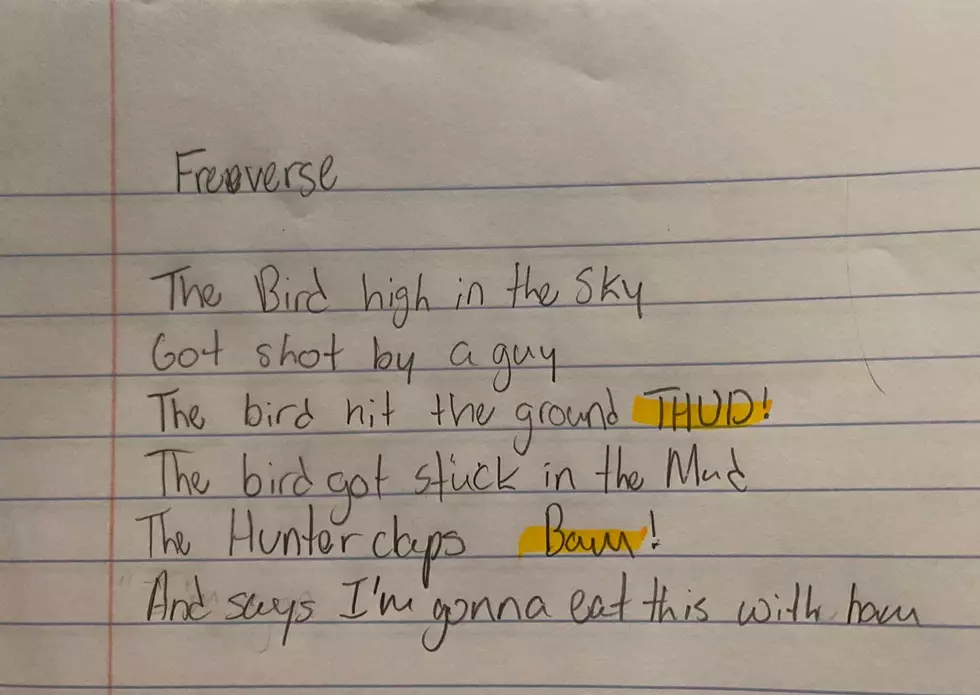 Freeverse
The Bird high in the Sky
Got shot by a guy
The bird hit the ground THUD!
The bird got stuck in the Mud
The Hunter claps Bam!
And says I'm gonna eat this with ham